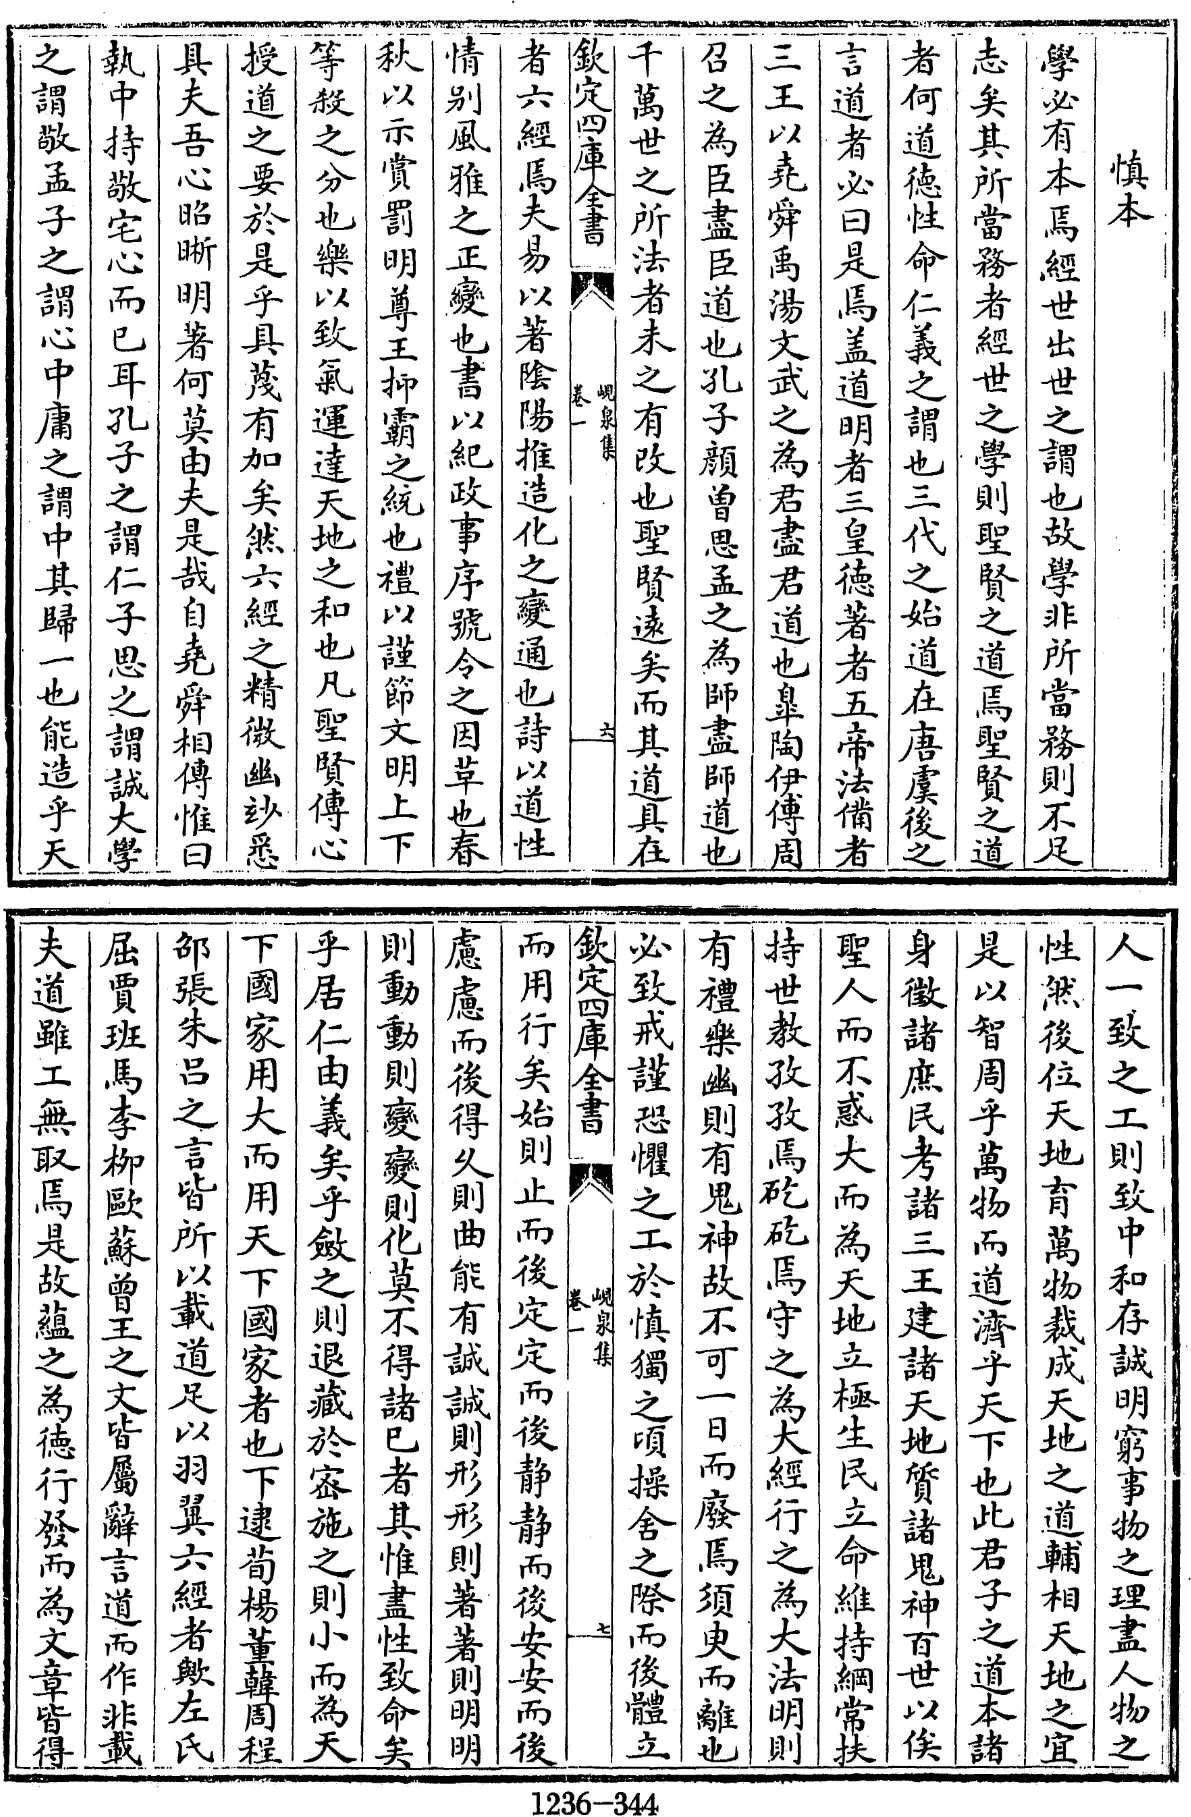 慎本
學必有本焉經世出世之謂也故學非所當務則不足
志矣其所當務者經世之學則聖賢之道焉聖賢之道
者何道德性命仁義之謂也三代之始道在唐虞後之
言道者必曰是焉盖道明者三皇德著者五帝法備者
三王以堯舜禹湯文武之為君盡君道也臯陶伊傅周
召之為臣盡臣道也孔子顏曾思孟之為師盡師道也
千萬世之所法者未之有改也聖賢逺矣而其道具在
欽定四庫全書
峴泉集
卷一
六
者六經焉夫易以著隂陽推造化之變通也詩以道性
情别風雅之正變也書以紀政事序號令之因革也春
秋以示賞罰明尊王抑霸之統也禮以謹節文明上下
等殺之分也樂以致氣運達天地之和也凡聖賢傳心
授道之要於是乎具蔑有加矣然六經之精微幽玅悉
具夫吾心昭晰明著何莫由夫是哉自堯舜相傳惟曰
執中持敬宅心而已耳孔子之謂仁子思之謂誠大學
之謂敬孟子之謂心中庸之謂中其歸一也能造乎天
人一致之工則致中和存誠明窮事物之理盡人物之
性然後位天地育萬物裁成天地之道輔相天地之宜
是以智周乎萬物而道濟乎天下也此君子之道本諸
身徵諸庶民考諸三王建諸天地質諸鬼神百世以俟
聖人而不惑大而為天地立極生民立命維持綱常扶
持世教孜孜焉矻矻焉守之為大經行之為大法明則
有禮樂幽則有鬼神故不可一日而廢焉須臾而離也
必致戒謹恐懼之工於慎獨之頃操舍之際而後體立
欽定四庫全書
峴泉集
卷一
七
而用行矣始則止而後定定而後静静而後安安而後
慮慮而後得久則曲能有誠誠則形形則著著則明明
則動動則變變則化莫不得諸已者其惟盡性致命矣
乎居仁由義矣乎斂之則退藏於宻施之則小而為天
下國家用大而用天下國家者也下逮荀楊董韓周程
邵張朱吕之言皆所以載道足以羽翼六經者歟左氏
屈賈班馬李柳歐蘇曾王之文皆屬辭言道而作非載
夫道雖工無取焉是故蘊之為德行發而為文章皆得
1236-344